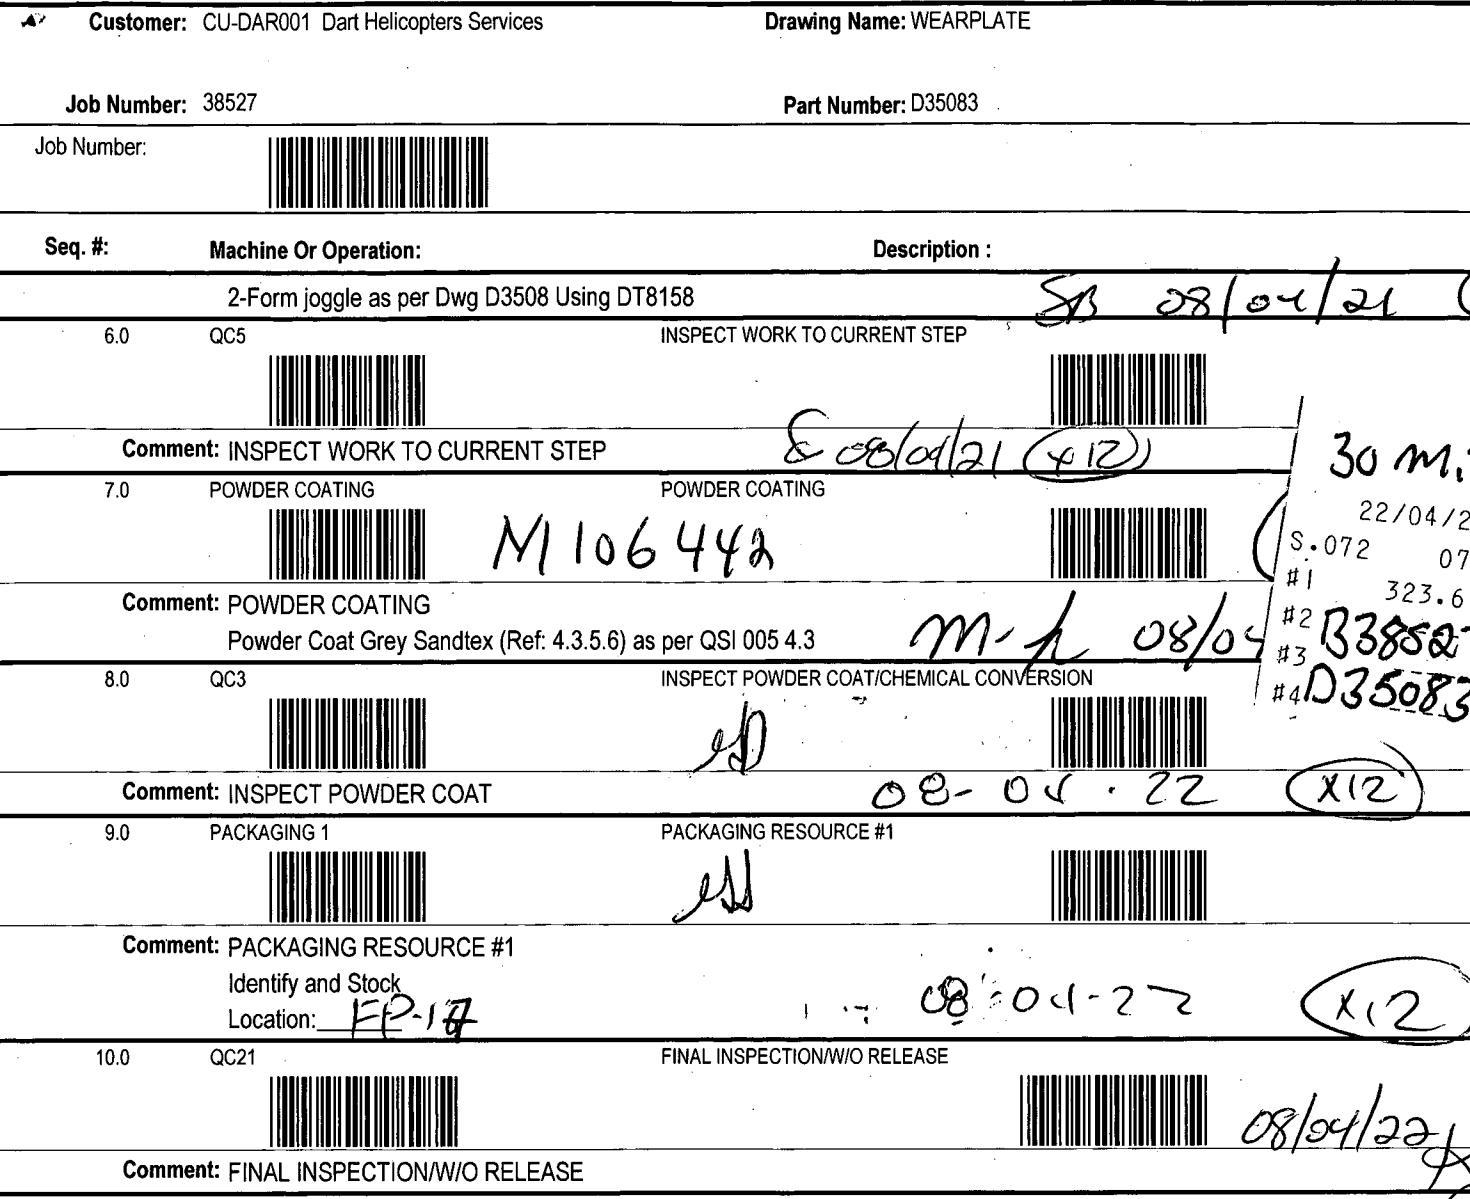 Customer: CU-DAR001 Dart Helicopters Services Drawing Name: WEARPLATE
Job Number: 38527 Part Number: D35083
Job Number:
Seq. #: Machine Or Operation: Description :
2-Form joggle as per Dwg D3508 Using DT8158 SB 08/04/21
6.0 QC5 INSPECT WORK TO CURRENT STEP
Comment: INSPECT WORK TO CURRENT STEP 08/04/21 (x12)
30 Mi
7.0 POWDER COATING POWDER COATING
22/04/2
M106442
S.072 07
#1 323.6
Comment: POWDER COATING
#2 B3852
Powder Coat Grey Sandtex (Ref: 4.3.5.6) as per QSI 005 4.3 08/04
#3
8.0 QC3 INSPECT POWDER COAT/CHEMICAL CONVERSION
#4 D35083
Comment: INSPECT POWDER COAT 08-04.22 x12
9.0 PACKAGING 1 PACKAGING RESOURCE #1
Comment: PACKAGING RESOURCE #1
Identify and Stock
Location: FP-17 08-04-22 x12
10.0 QC21 FINAL INSPECTION/W/O RELEASE
08/04/22
Comment: FINAL INSPECTION/W/O RELEASE